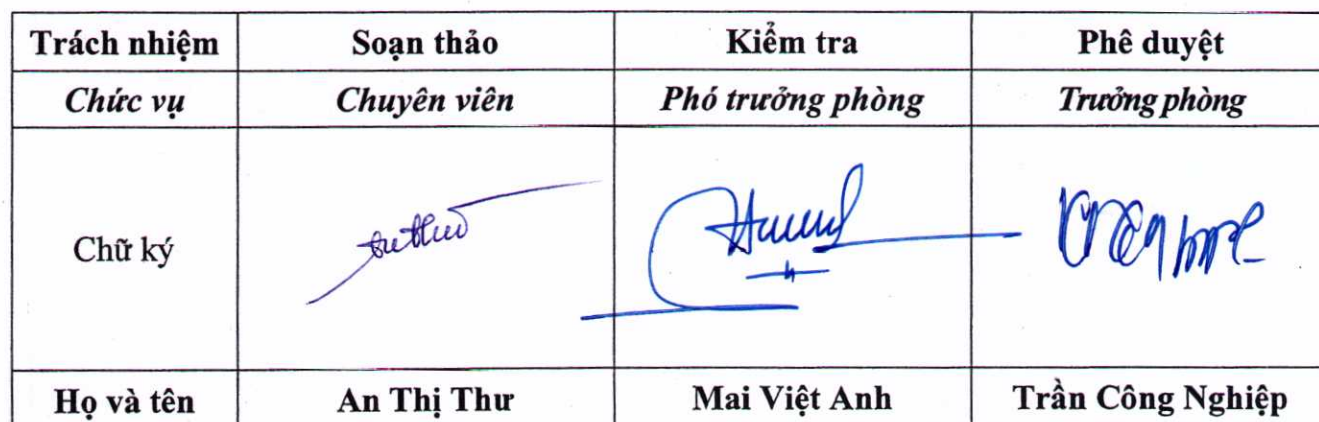 Trách nhiệm Soạn thảo Kiểm tra Phê duyệt
Chức vụ Chuyên viên Phó trưởng phòng Trưởng phòng
Chữ ký
Họ và tên An Thị Thư Mai Việt Anh Trần Công Nghiệp